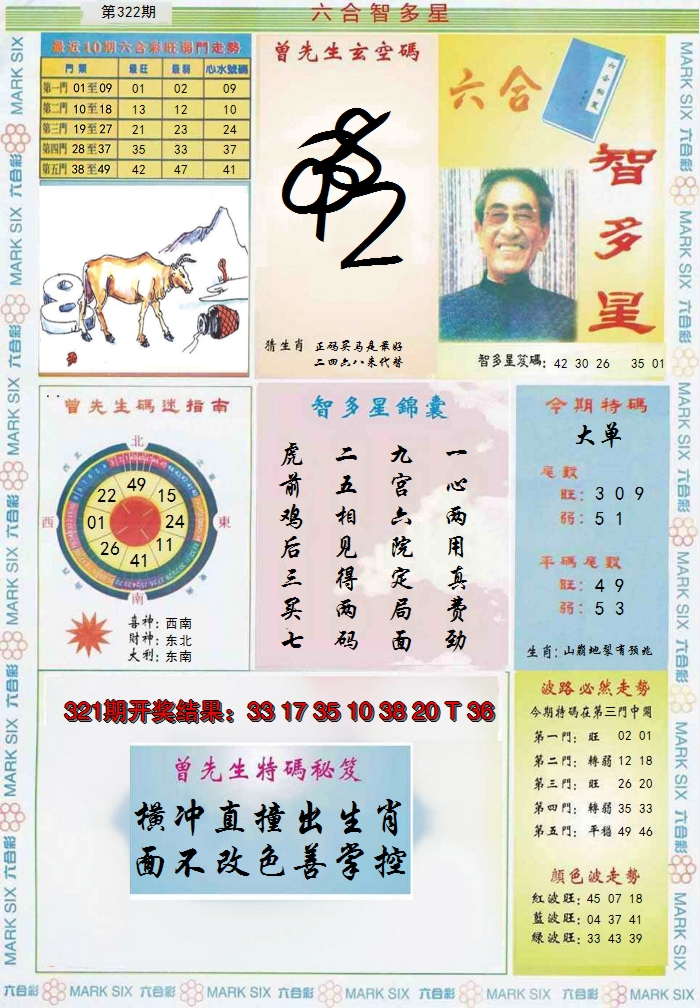 第322期
六合智多星
最近10期六合彩旺弱門走勢
門類 最旺 最弱 心水號碼
第一門 01至09 01 02 09
第二門 10至18 13 12 10
第三門 19至27 21 23 24
第四門 28至37 35 33 37
第五門 38至49 42 47 41
曾先生玄空碼
猜生肖 正码买马是最好
二四六八来代替
六合
智多星
智多星笈碼: 42 30 26 35 01
曾先生碼迷指南
北
西
東
南
49
15
24
11
41
26
01
22
喜神: 西南
財神: 东北
大利: 东南
智多星錦囊
一心两用真费劲
九宫六院定局面
二五相见得两码
虎前鸡后三买七
今期特碼
大单
尾數
旺: 3 0 9
弱: 5 1
平碼尾數
旺: 4 9
弱: 5 3
生肖: 山崩地裂有预兆
321期开奖结果: 33 17 35 10 38 20 T 36
曾先生特碼秘笈
橫冲直撞出生肖
面不改色善掌控
波路必然走勢
今期特碼在第三門中開
第一門: 旺 02 01
第二門: 轉弱 12 18
第三門: 旺 26 20
第四門: 轉弱 35 33
第五門: 平穩 49 46
顏色波走勢
紅波旺: 45 07 18
藍波旺: 04 37 41
綠波旺: 33 43 39
MARK SIX 六合彩 MARK SIX 六合彩 MARK SIX 六合彩 MARK SIX 六合彩 MARK SIX 六合彩